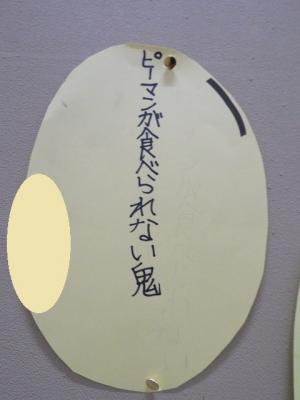 ピーマンが食べられない鬼